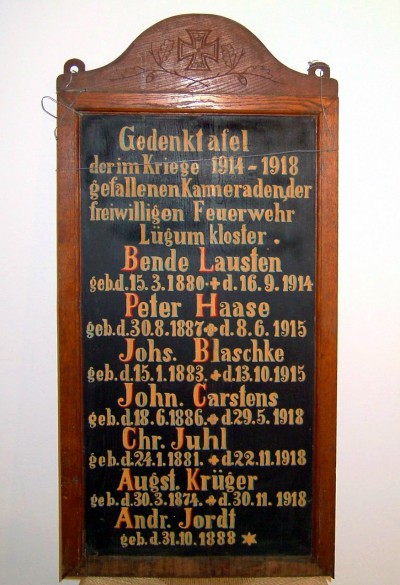 Gedenktafel
der im Kriege 1914 - 1918
gefallenen Kameraden, der
freiwilligen Feuerwehr
Lügumkloster.
Bende Lausten
geb.d.15.3.1880 + d.16.9.1914
Peter Haase
geb.d.30.8.1887 + d.8.6.1915
Johs. Blaschke
geb.d.15.1.1883. + d.13.10.1915
John. Carstens
geb.d.18.6.1886. + d.29.5.1918
Chr. Juhl
geb.d.24.1.1881. + d.22.11.1918
Augst. Krüger
geb.d.30.3.1874. + d.30.11.1918
Andr. Jordt
geb.d.31.10.1888 *